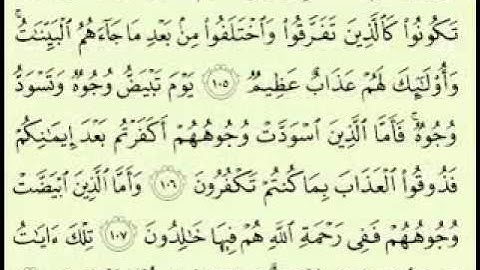 تَكُونُوا۟ كَٱلَّذِينَ تَفَرَّقُوا۟ وَٱخْتَلَفُوا۟ مِنۢ بَعْدِ مَا جَآءَهُمُ ٱلْبَيِّنَٰتُ ۚ
وَأُو۟لَٰٓئِكَ لَهُمْ عَذَابٌ عَظِيمٌ ١٠٥ يَوْمَ تَبْيَضُّ وُجُوهٌ وَتَسْوَدُّ
وُجُوهٌ ۚ فَأَمَّا ٱلَّذِينَ ٱسْوَدَّتْ وُجُوهُهُمْ أَكَفَرْتُم بَعْدَ إِيمَٰنِكُمْ
فَذُوقُوا۟ ٱلْعَذَابَ بِمَا كُنتُمْ تَكْفُرُونَ ١٠٦ وَأَمَّا ٱلَّذِينَ ٱبْيَضَّتْ
وُجُوهُهُمْ فَفِى رَحْمَةِ ٱللَّهِ هُمْ فِيهَا خَٰلِدُونَ ١٠٧ تِلْكَ ءَايَٰتُ